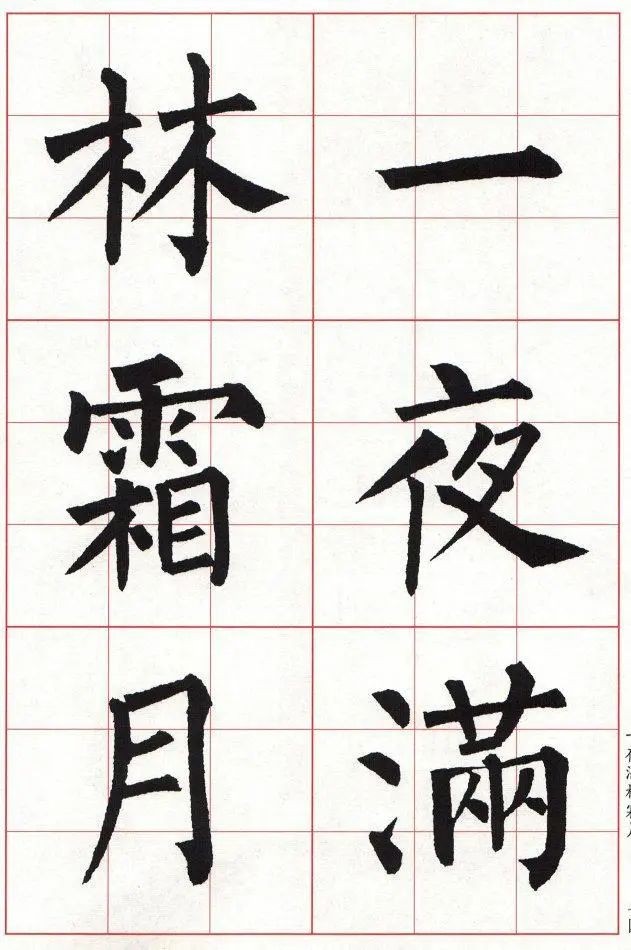 一夜滿
林霜月